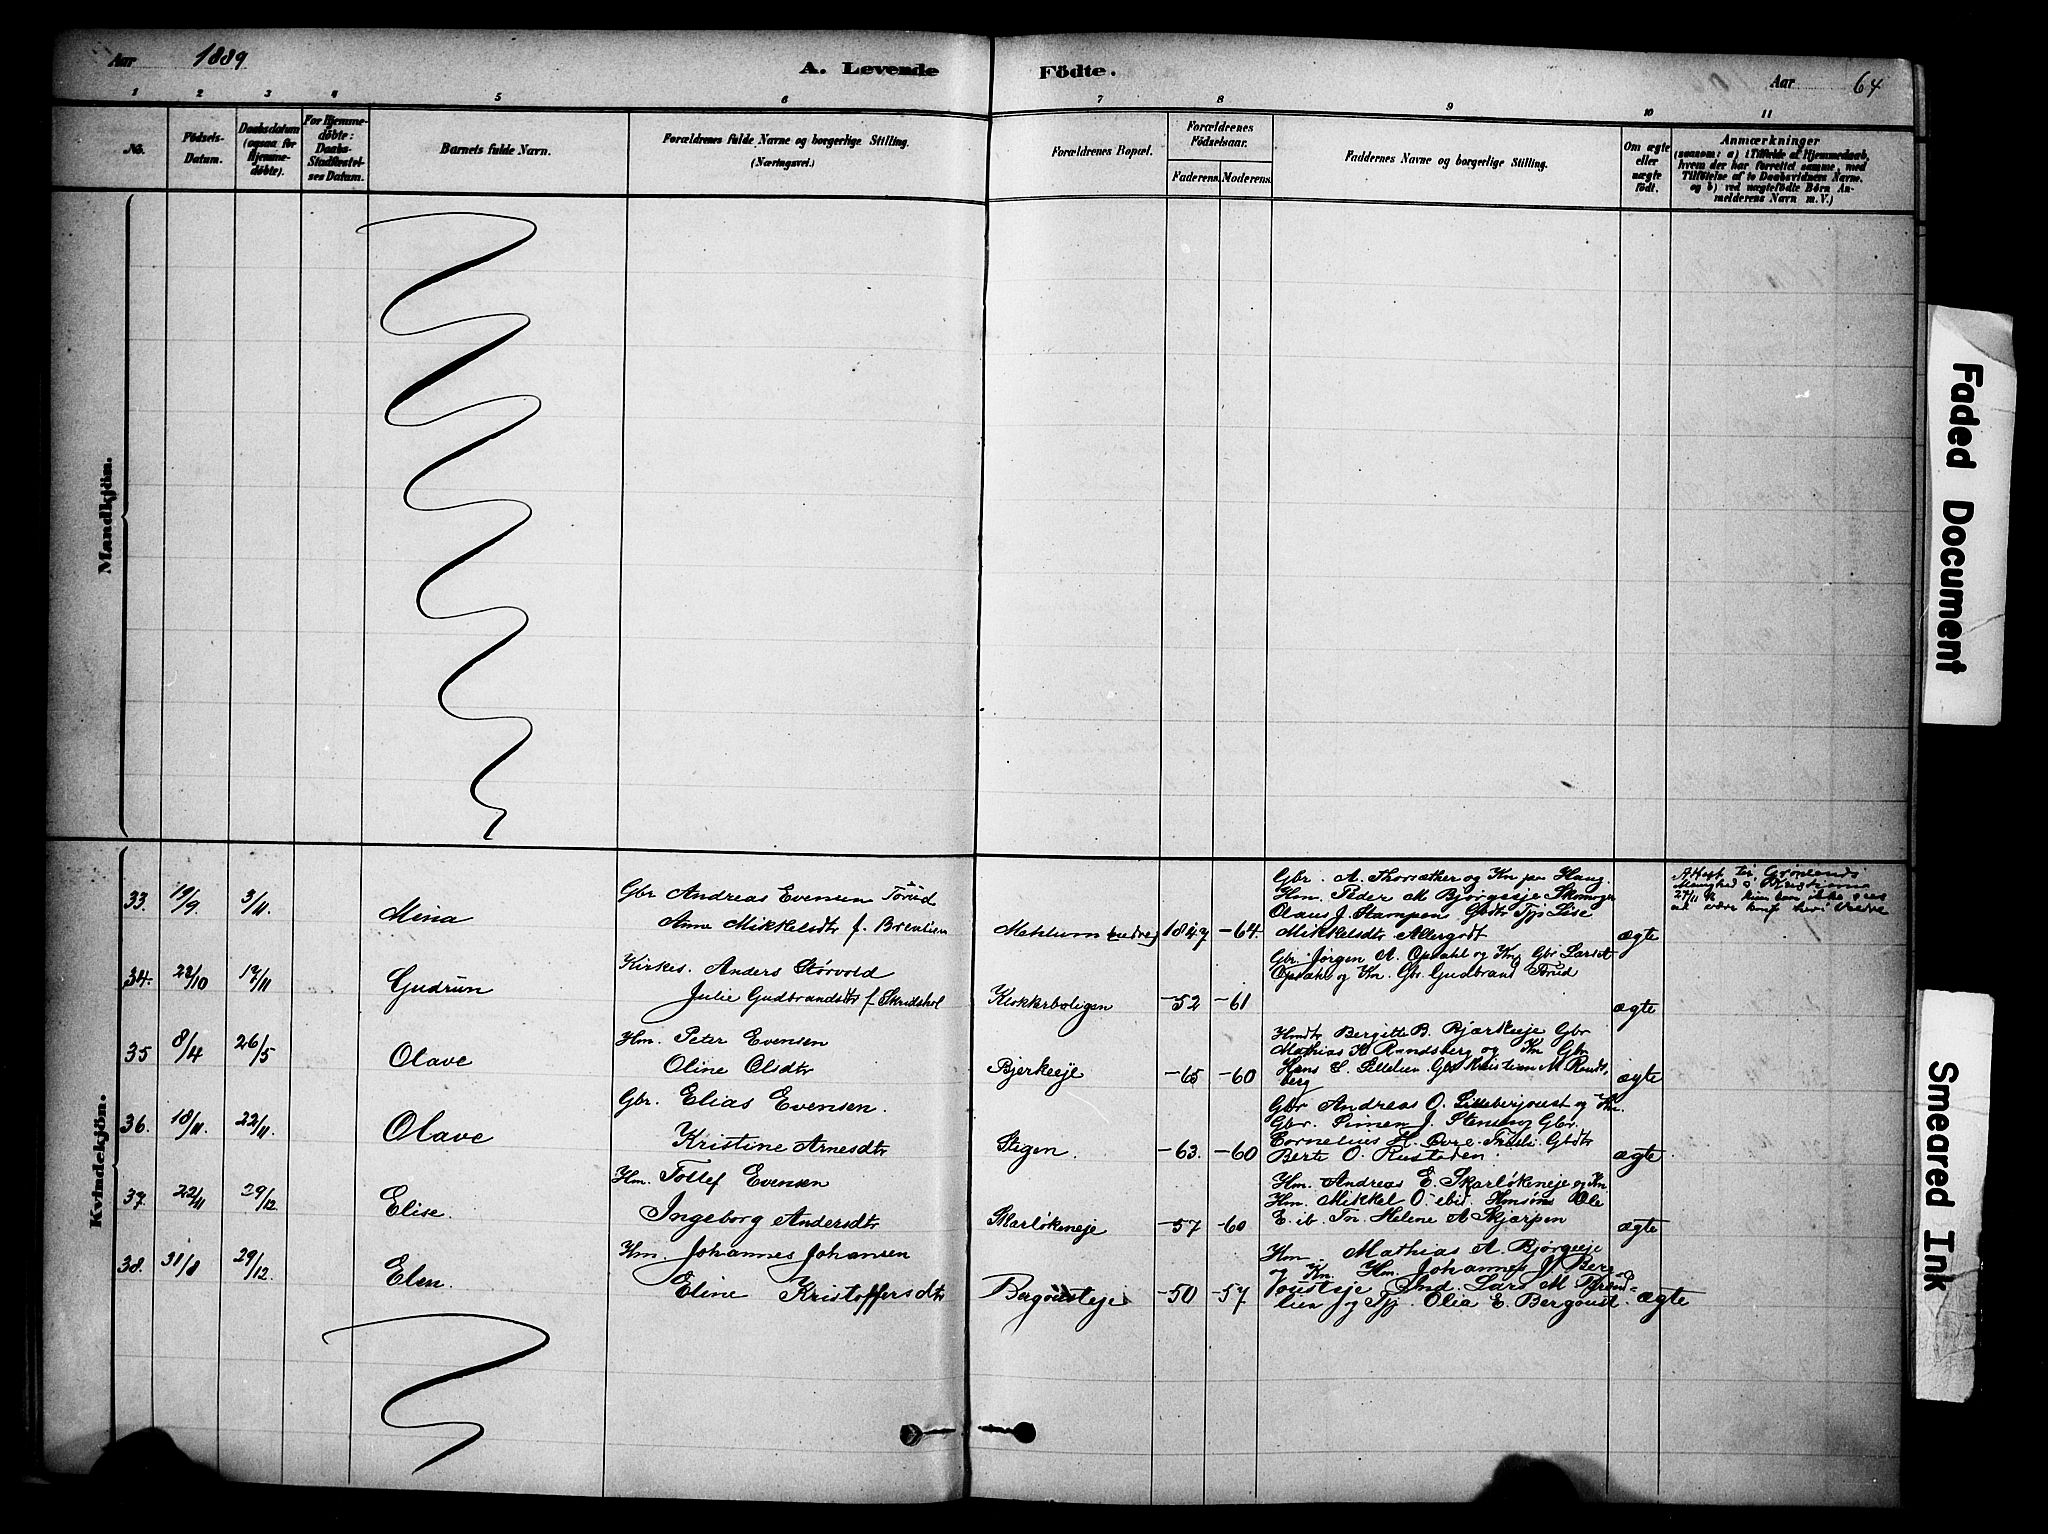 Aar 1889 A. Levende Födte. Aar 64
1 2 3 4 5 6 7 8 9 10 11
No.
Födsels-Datum.
Daabsdatum (ogsaa for Hjemme-döbte).
For Hjemme-döbte: Daabs-Stadfæstel-ses Datum.
Barnets fulde Navn.
Forældrenes fulde Navne og borgerlige Stilling.
(Næringsvei.)
Forældrenes Bopæl.
Forældrenes Födselsaar.
Faderens. Moderens.
Faddernes Navne og borgerlige Stilling.
Om ægte eller uægte födt.
Anmærkninger
(saasom: a) i Tilfælde af Hjemmedaab,
hvem der har forrettet samme, med
Tilföielse af to Daabsvidners Navne.
og b) ved uægtefödte Börn An-
melderens Navn m. V.)
Mandkjön.
Kvindekjön.
33. 19/9 3/11 Mina
Gbr Andreas Evensen Torud
Anne Mikkelsdtr f. Brenlien
Mehlum 1847 -64.
Gbr. A. Thorsæther og Kn per Haug
Hm. Peder M Bjørgeeje
Olaus J. Stampen Gbdtr Lise
Mikkelsdtr Allergodt
ægte
Attest til Grønlands
Menighed i Kristiania
34. 22/10 17/11 Gudrun
Kirkes. Anders Størvold
Julie Gudbrandsdtr f Skredshol
Klokkerboligen -52 -61
Gbr. Jørgen A. Opsahl og Kn Gbr Lars A
Opsahl og Kn. Gbr Gudbrand Torud
ægte
35 8/4 26/5 Olave
Hm. Peter Evensen
Oline Olsdtr
Bjerkeeje -65 -60
Hmdtr Bergitte B. Bjerkeeje Gbr
Mathias K Rundsberg og Kn Gbr
Hans E. Lillelien Gbr Kristian M Runds,
berg
ægte
36. 18/11. 22/11. Olave
Gbr. Elias Evensen.
Kristine Arnesdtr
Stigen. -63. -60
Gbr Andreas O. Lillebergoust og Kn.
Gbr. Simen J. Gbr.
Cornelius H. Øvre Gbdtr
Berte O. Rustaden.
ægte
37. 22/11 29/12 Elise.
Hm. Tollef Evensen
Ingeborg Andersdtr
Skarløkeneje -57 -60
Hm. Andreas E. Skarløkeneje og Kn
Hm. Mikkel O. ibid. Hmsøn Ole
E. ib. Tn. Helene A Skjærpen
ægte
38. 31/8 29/12. Elen.
Hm. Johannes Johansen
Eline Kristoffersdtr
Bergousteje -50 -57
Hm. Mathias A. Bjørgeeje
og Kn. Hm. Johannes J. Berg
ousteje Ind. Lars M
lien og Tj. Olia E. Bergoust.
ægte
Faded Document
Smeared Ink